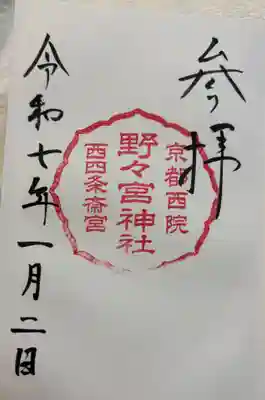 参拝
京都西院
野々宮神社
西四条斎宮
令和七年一月二日